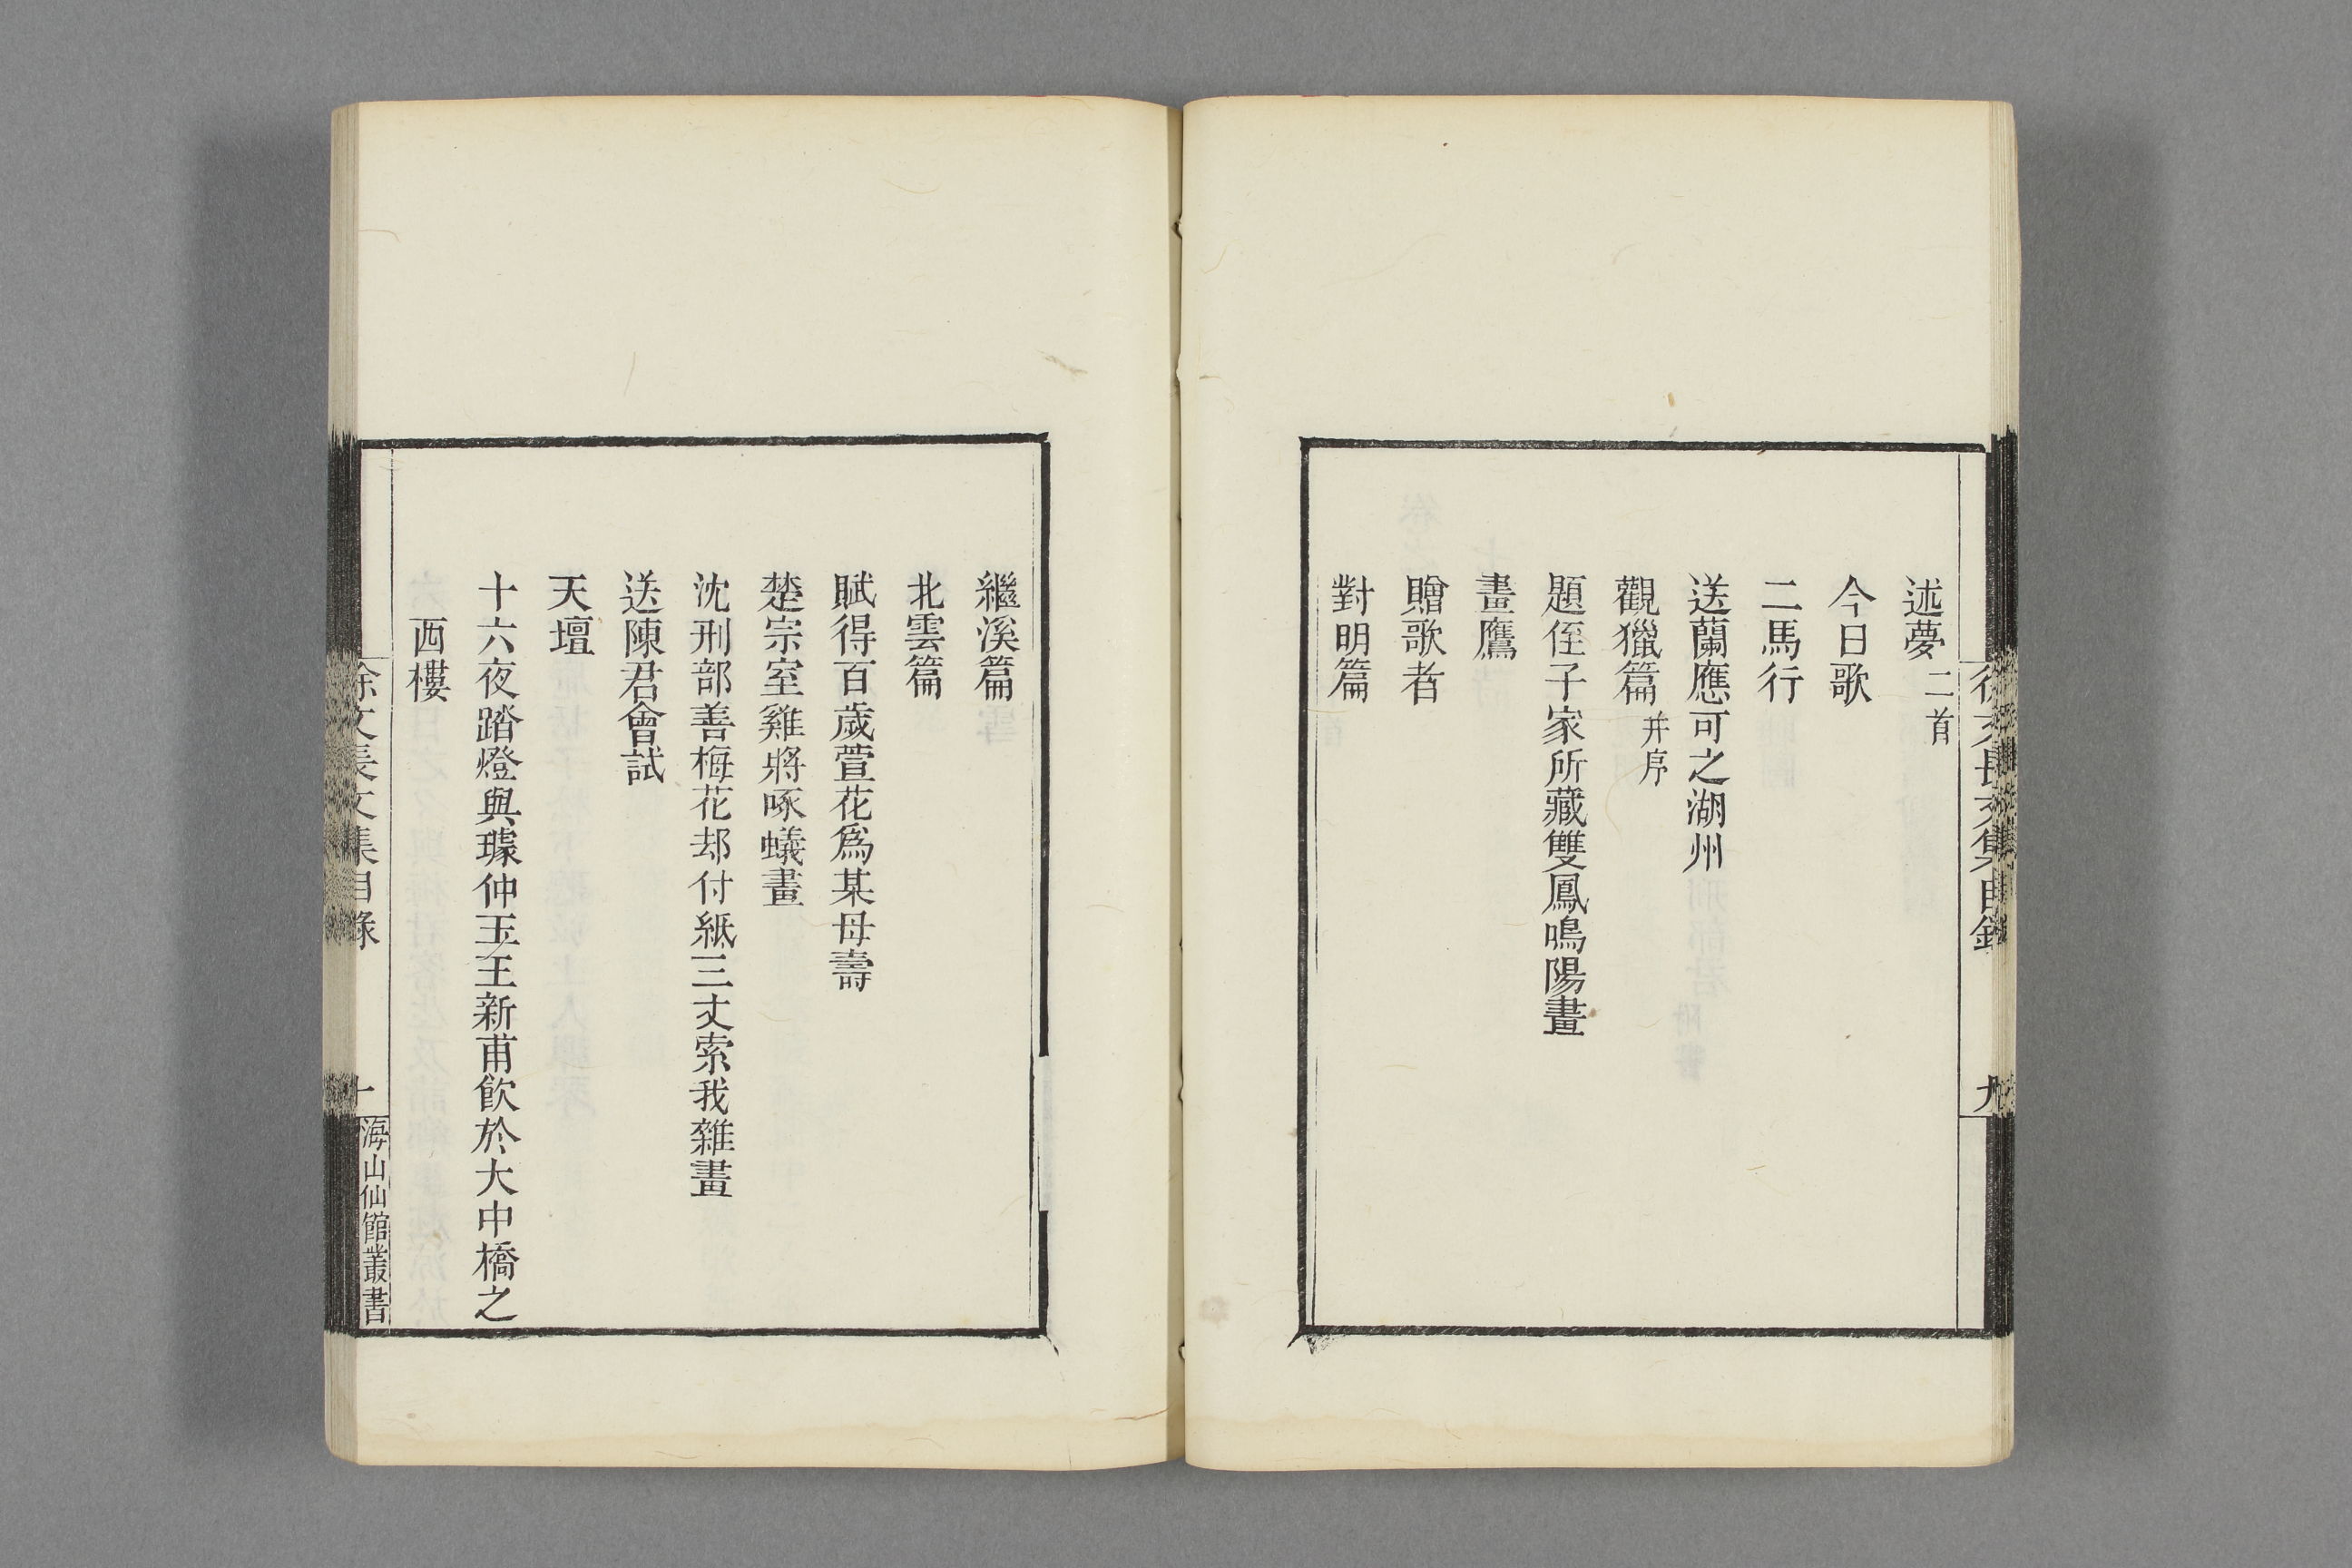 述夢二首
今日歌
二馬行
送蘭應可之湖州
觀獵篇并序
題侄子家所藏雙鳳鳴陽畫
畫鷹
贈歌者
對明篇
徐文長文集目錄
九
繼溪篇
北雲篇
賦得百歲萱花爲某母壽
楚宗室雞將啄蟻畫
沈刑部善梅花却付紙三丈索我雜畫
送陳君會試
天壇
十六夜踏燈與璩仲玉王新甫飲於大中橋之
西樓
徐文長文集目錄
十
海山仙館叢書